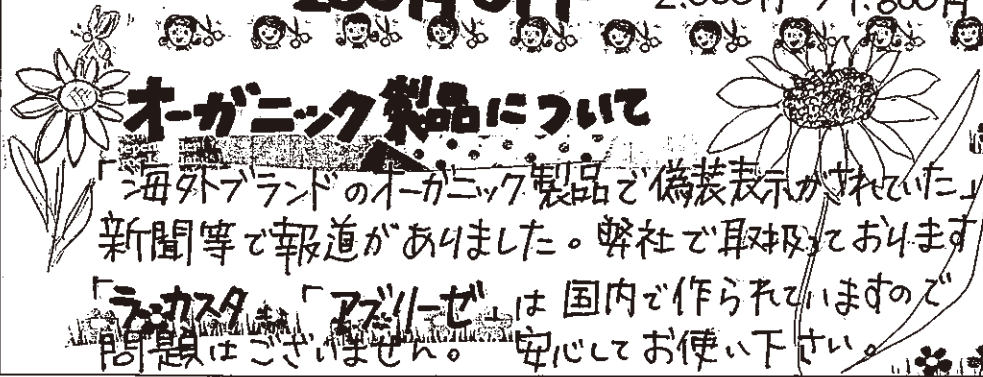 2.000円→1.800円
オーガニック製品について
「海外ブランドのオーガニック製品で偽装表示がされていた」
新聞等で報道がありました。弊社で取扱っております
「ラ・カスタ」「アブリーゼ」は国内で作られていますので
問題はございません。安心してお使い下さい。